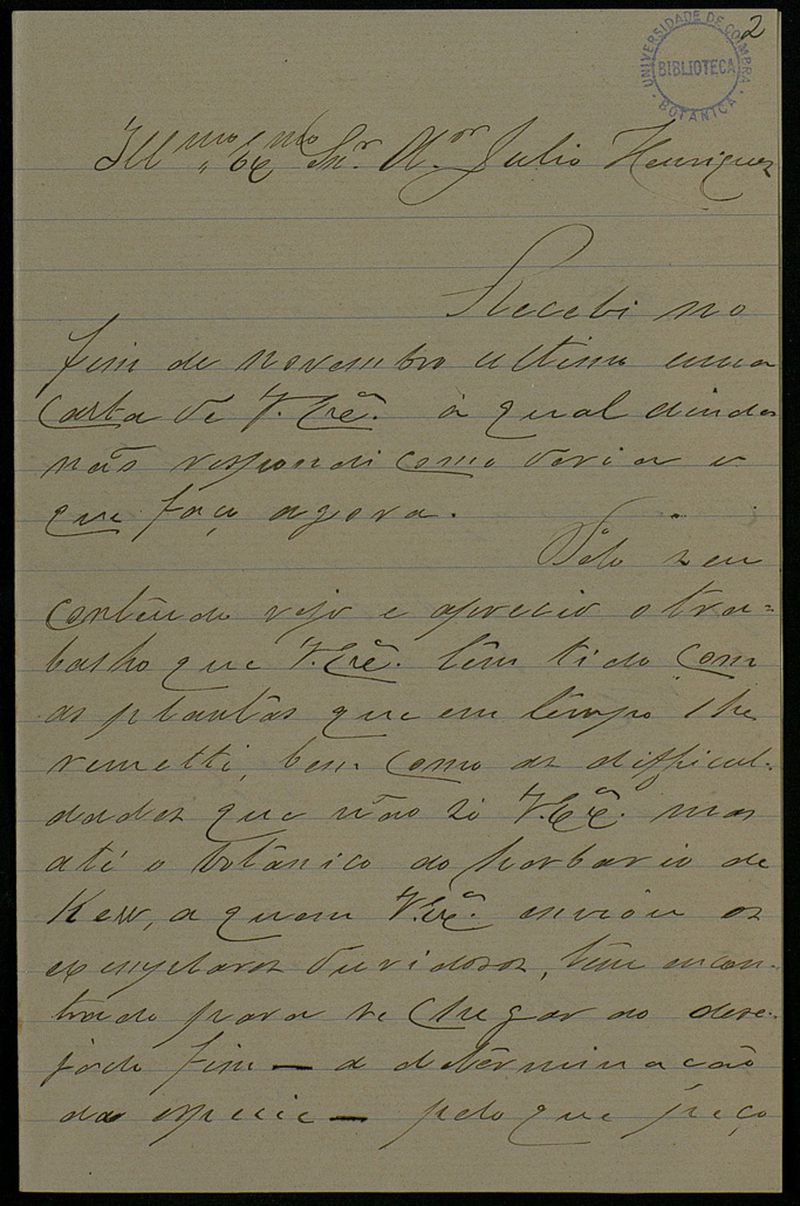 2
UNIVERSIDADE DE COIMBRA
BIBLIOTECA
BOTANICA
Illmo. Exmo Snr. Dor Julio Henriques
Recebi no
fim de novembro ultimo uma
carta de V. Exª. á qual ainda
não respondi como devia o
que faço agora.
Pelo seu
contêudo vejo e aprecio o tra=
balho que V. Exª. têm tido com
as plantas que em têmpo lhe
remetti, bem como as difficul-
dades que não só V. Exª. mas
até o botânico do herbario de
Kew, a quem V. Exª. enviôu os
exemplares duvidosos, têm encon-
trado para se chegar ao dese-
jado fim — a detêrminacão
da especie — pelo que peço